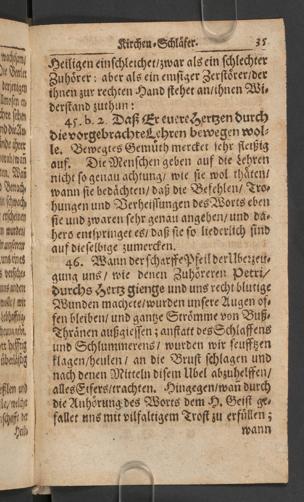 Kirchen-Schläfer. 35
Heiligen einschleichet/zwar als ein schlechter
Zuhörer: aber als ein emsiger Zerstörer/der
ihnen zur rechten Hand stehet an/ihnen Wi-
derstand zuthun:
45. b. 2. Daß Er euere Hertzen durch
die vorgebrachte Lehren bewegen wol-
le. Bewegtes Gemüth mercket sehr fleißig
auf. Die Menschen geben auf die Lehren
nicht so genau achtung/ wie sie wol thäten/
wann sie bedächten/ daß die Befehlen/ Tro-
hungen und Verheissungen des Worts eben
sie und zwaren sehr genau angehen/ und da-
hero entspringet es/ daß sie so liederlich sind
auf dieselbige zumercken.
46. Wann der scharffe Pfeil der Uberzeu-
gung uns/ wie denen Zuhöreren Petri/
durchs Hertz gienge und uns recht blutige
Wunden machete/wurden unsere Augen of-
fen bleiben/ und gantze Ströme von Buß-
Thränen außgiessen; anstatt des Schlaffens
und Schlummerens/ wurden wir seufftzen
klagen/heulen/ an die Brust schlagen und
nach denen Mitteln disem Ubel abzuhelffen/
alles Eifers/trachten. Hingegen/wan durch
die Anhörung des Worts dem H. Geist ge-
fallet uns mit vilfaltigem Trost zu erfüllen;
wann